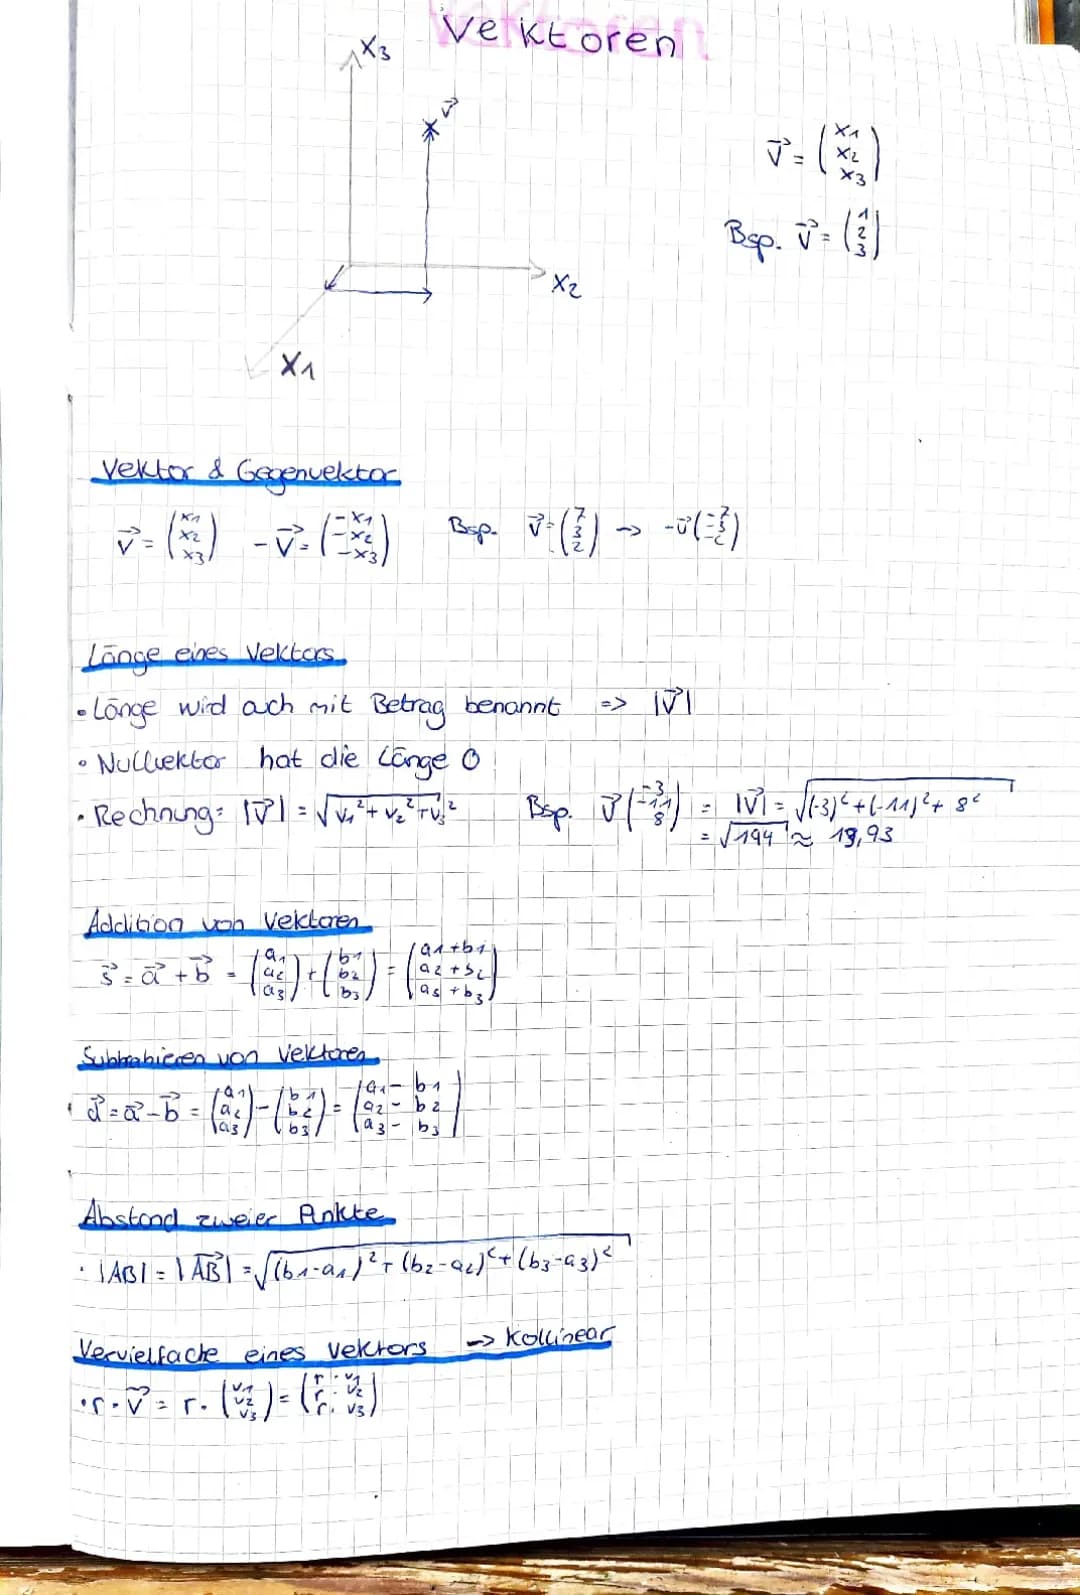 Vektoren
X3
v⃗
v⃗ = (x1 x2 x3)
Bsp. v⃗ = (1 2 3)
X2
X1
Vektor & Gegenvektor
v⃗ = (x1 x2 x3) -v⃗ = (-x1 -x2 -x3) Bsp. v⃗ = (7 3 2) -> -v⃗ (-7 -3 -2)
Länge eines Vektors
• Länge wird auch mit Betrag benannt => |v⃗|
• Nullvektor hat die Länge 0
• Rechnung: |v⃗| = √v1² + v2² + v3² Bsp. v⃗ (-3 -11 8) = |v⃗| = √(-3)² + (-11)² + 8²
= √194 ≈ 13,93
Addition von Vektoren
s⃗ = a⃗ + b⃗ = (a1 a2 a3) + (b1 b2 b3) = (a1+b1 a2+b2 a3+b3)
Subtrahieren von Vektoren
d⃗ = a⃗ - b⃗ = (a1 a2 a3) - (b1 b2 b3) = (a1 - b1 a2 - b2 a3 - b3)
Abstand zweier Punkte
• |AB| = |AB⃗| = √(b1-a1)² + (b2-a2)² + (b3-a3)²
Vervielfache eines Vektors -> Kollinear
• r · v⃗ = r · (v1 v2 v3) = (r · v1 r · v2 r · v3)